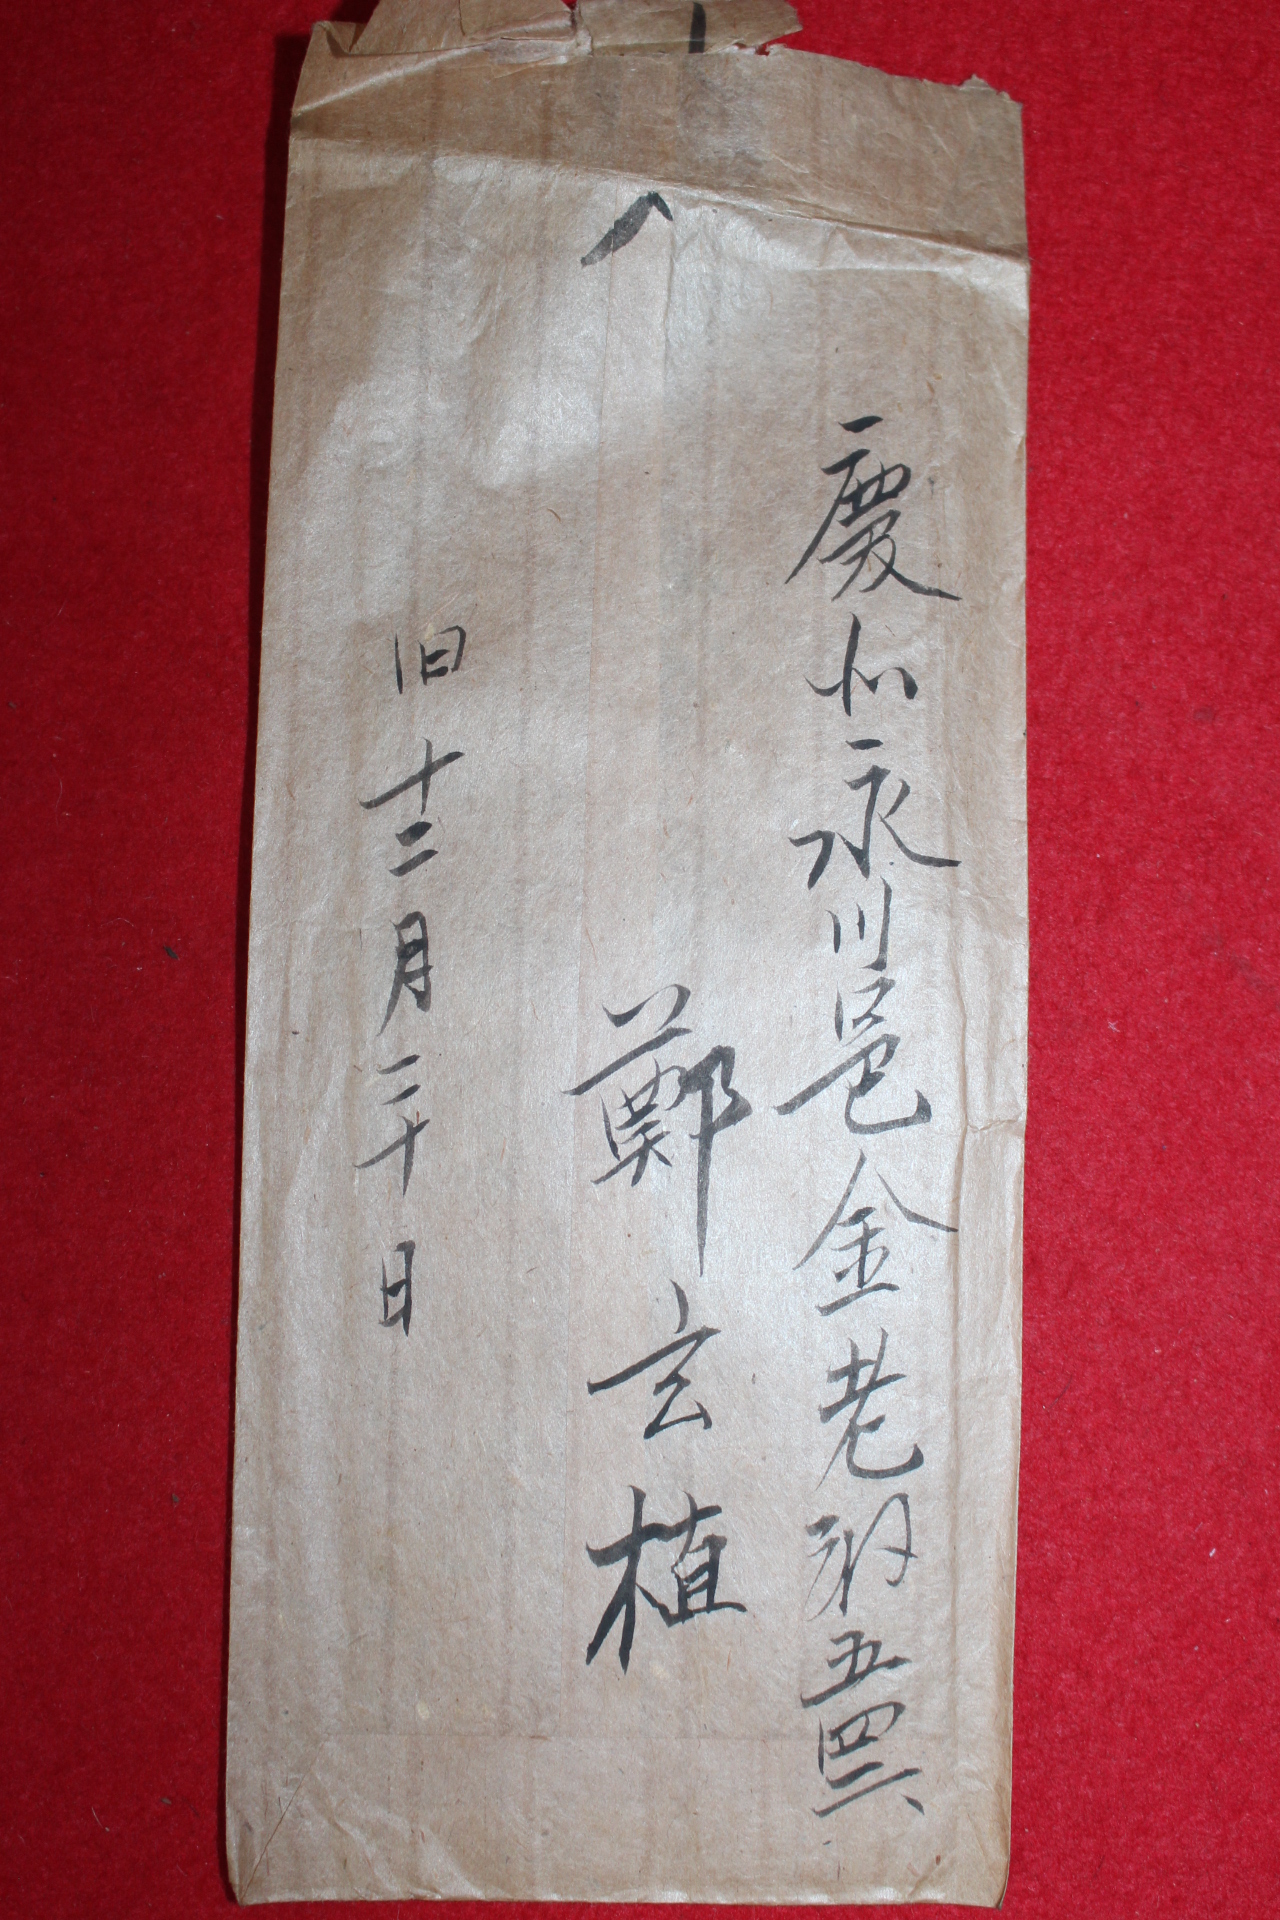 慶北永川邑金老洞五四二
鄭玄植
旧十二月二十日